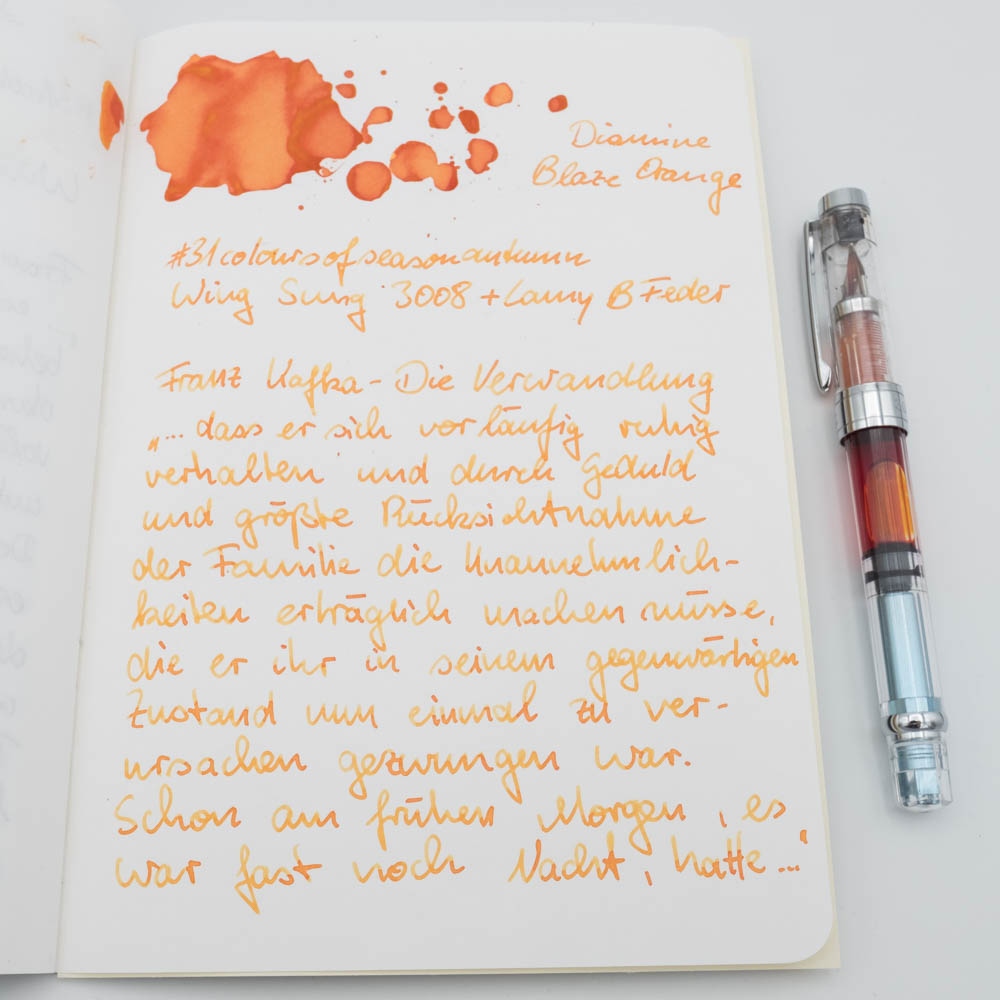 Diamine
Blaze Orange
#31coloursofseasonautumn
Wing Sung 3008 + Lamy B Feder
Franz Kafka - Die Verwandlung
„... dass er sich vorläufig ruhig
verhalten und durch Geduld
und größte Rücksichtnahme
der Familie die Unannehmlich-
keiten erträglich machen müsse,
die er ihr in seinem gegenwärtigen
Zustand nun einmal zu ver-
ursachen gezwungen war.
Schon am frühen Morgen, es
war fast noch Nacht, hatte ..."